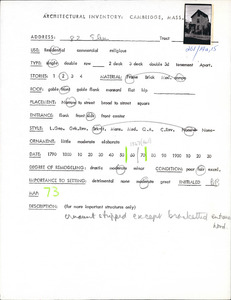 ARCHITECTURAL INVENTORY: CAMBRIDGE, MASS.
ADDRESS: 82 Tract
USE: Residential economical religious
TYPE: single double row 2 deck 3 deck double 3d tenement Apart.
STORIES: 1 2 3 4 MATERIAL: Frame Brick Wood
ROOF: gable flank gable mansard flat hip
PLACEMENT: Narrow to street broad to street square
ENTRANCE: front front side center
STYLE: L.Geo. Fed. Brkt. Mans. Med. Q.A. C.Rev. None
ORNAMENT: little moderate elaborate
DATE: 1790 1800 10 20 30 40 50 60 70 80 90 1900 10 20 30
DEGREE OF REMODELING: drastic moderate minor CONDITION: poor fair excel.
IMPORTANCE TO SETTING: detrimental none moderate great INITIALED
MAP 73
DESCRIPTION: (for more important structures only)
ornament stripped except bracketted entrance
hood.